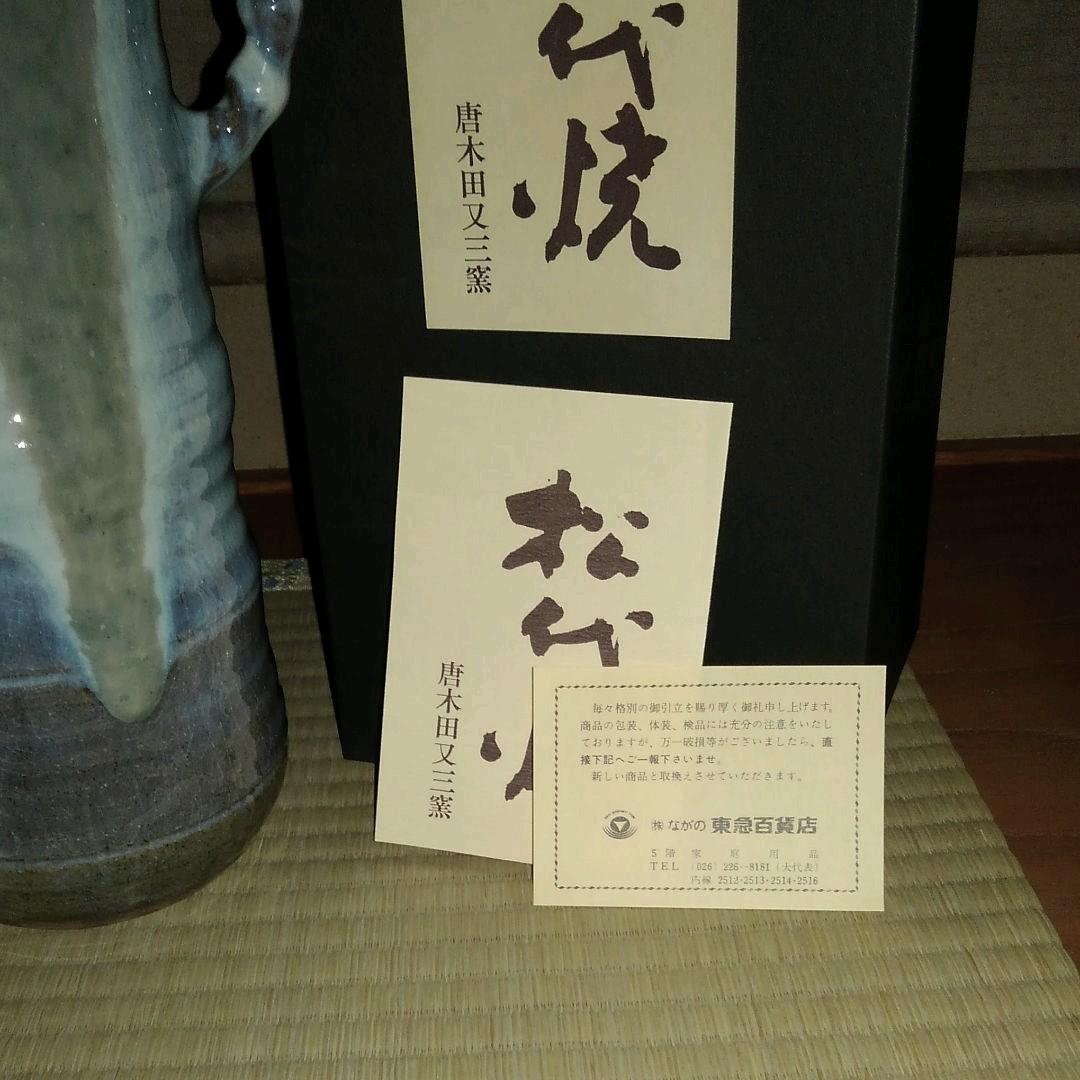 代焼
唐木田又三窯
松代
唐木田又三窯
毎々格別の御引立を賜り厚く御礼申し上げます。
商品の包装、体装、検品には充分の注意をいたし
ておりますが、万一破損等がございましたら、直
接下記へご一報下さいませ。
新しい商品と取換えさせていただきます。
㈱ ながの 東急百貨店
5階 家庭用品
TEL (026) 226-8181 (大代表)
内線 2512・2513・2514・2516